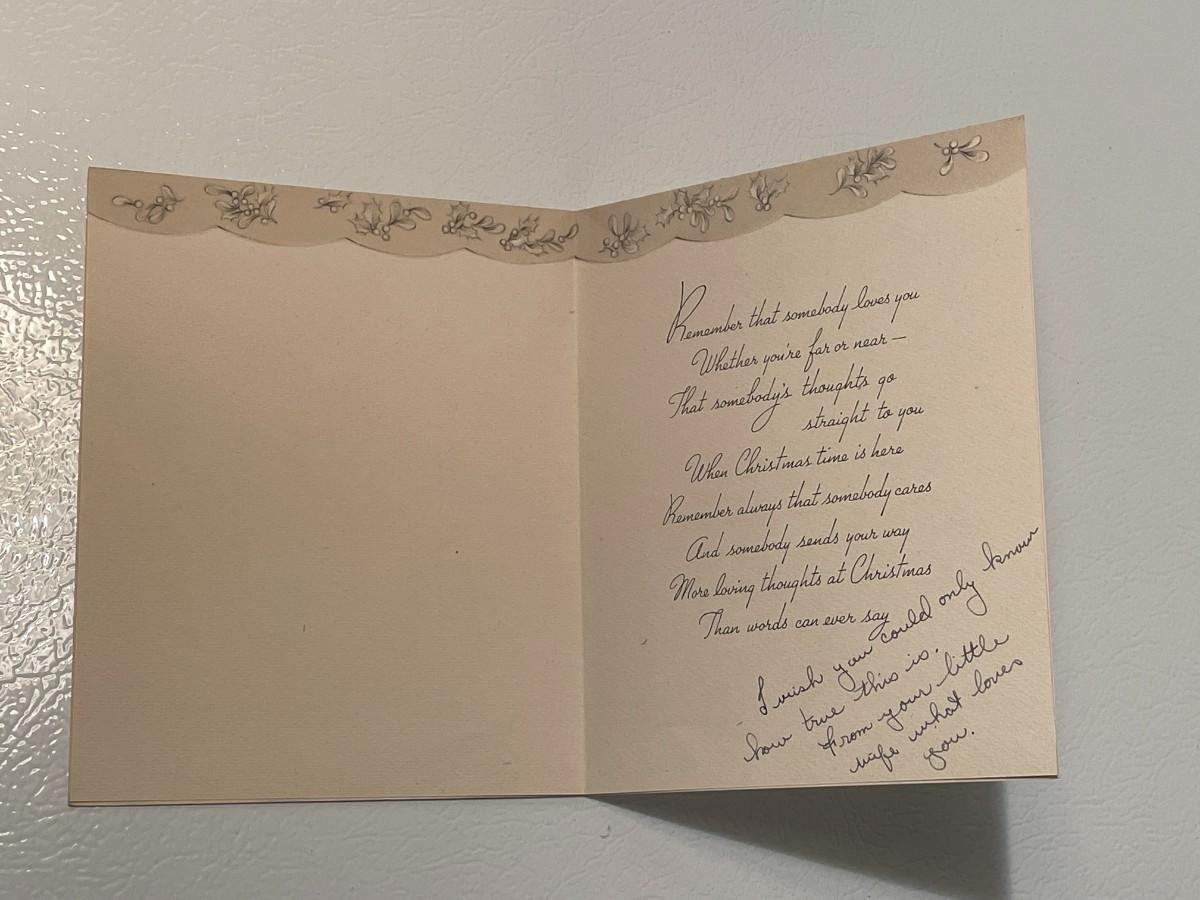 Remember that somebody loves you
Whether you're far or near —
That somebody's thoughts go
straight to you
When Christmas time is here
Remember always that somebody cares
And somebody sends your way
More loving thoughts at Christmas
Than words can ever say
I wish you could only know
how true this is.
From your little
wife what loves
you.